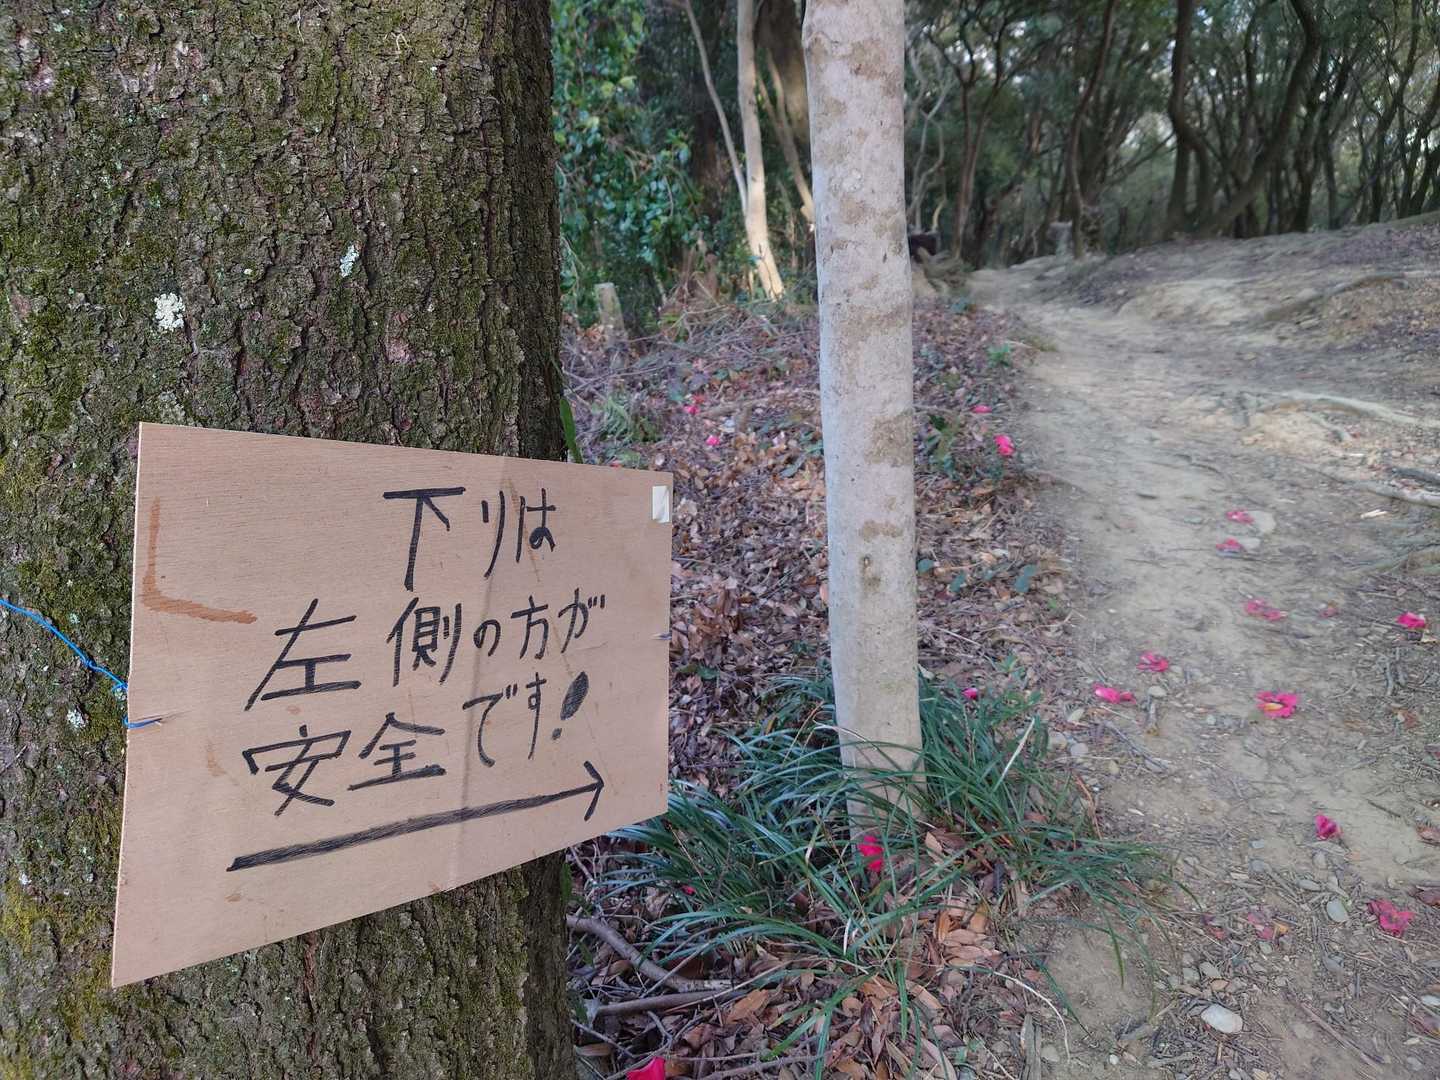 下りは
左側の方が
安全です!
→